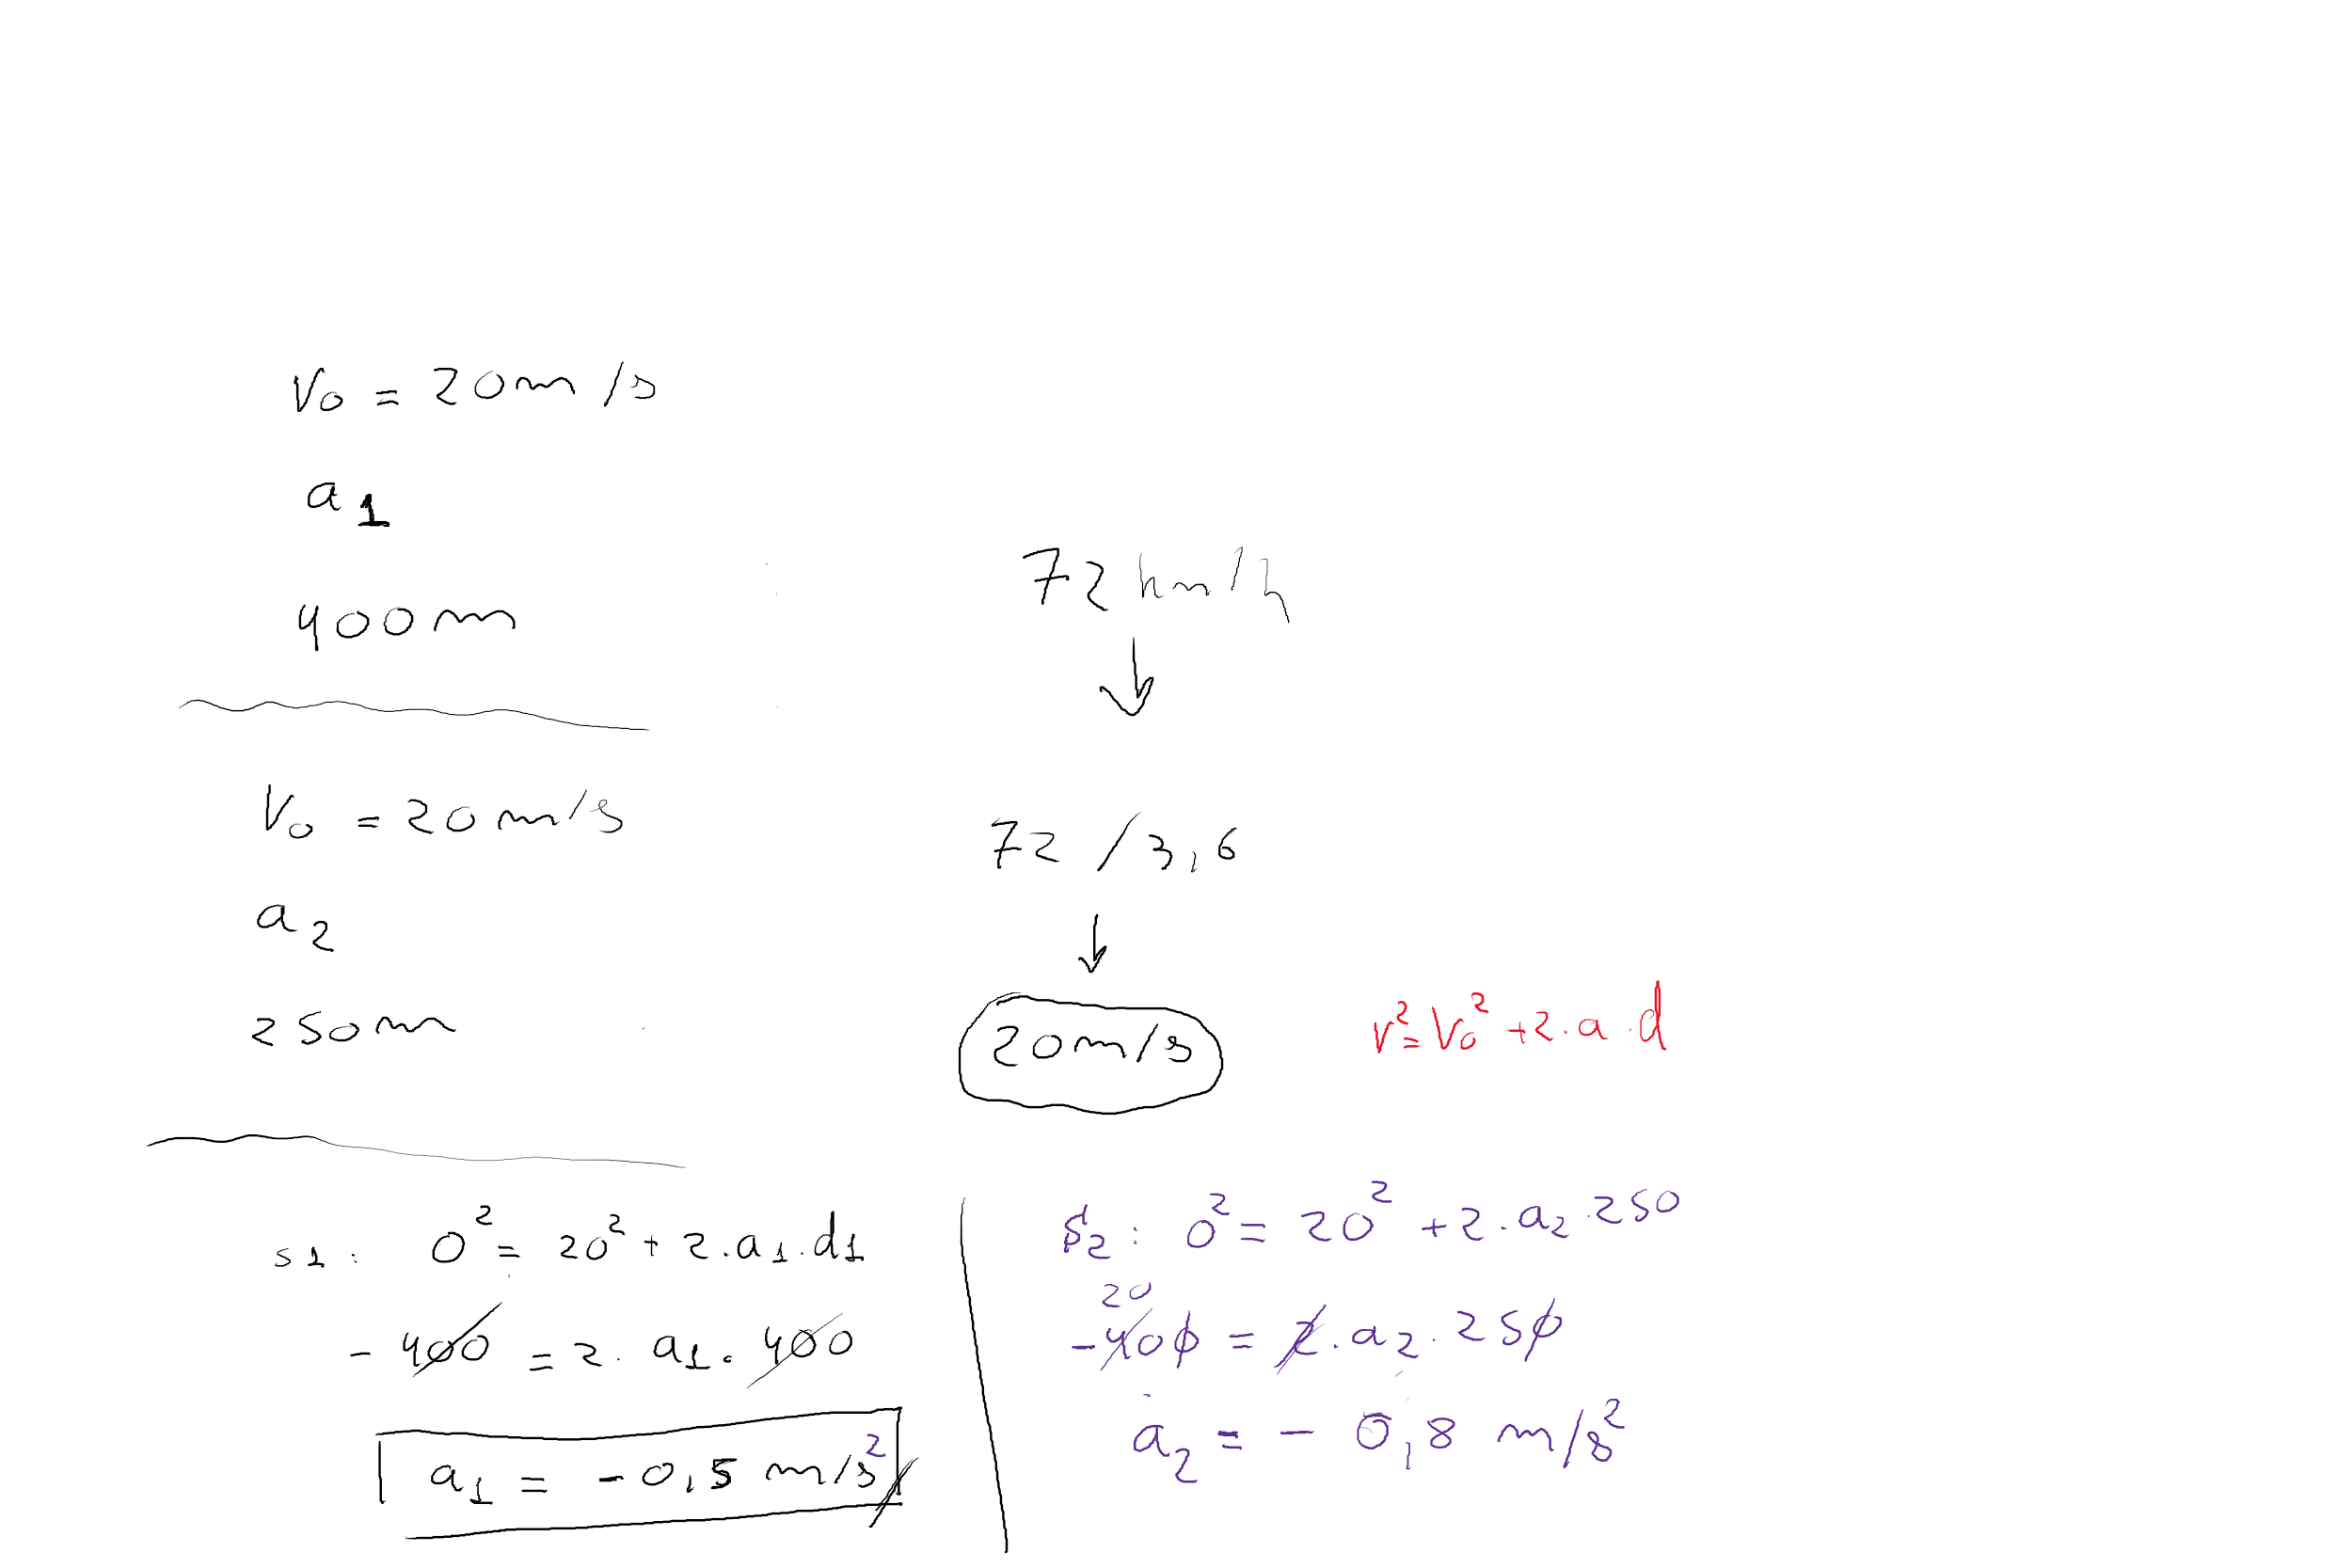 V₀ = 20m/s
a₁
400m
V₀ = 20m/s
a₂
250m
72km/h
↓
72/3,6
↓
20m/s
V² = V₀² + 2.a.d
s1: 0² = 20² + 2.a₁.d1
-400 = 2.a₁.400
a₁ = -0,5 m/s²
S₂: 0² = 20² + 2.a₂.250
20
-400 = 2.a₂.250
a₂ = -0,8 m/s²